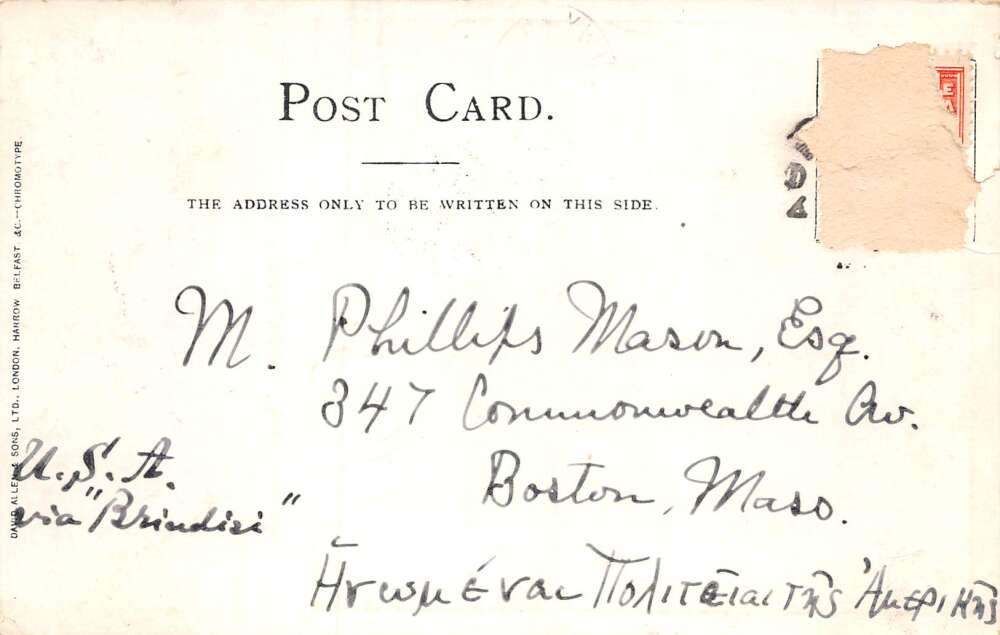 POST CARD.
THE ADDRESS ONLY TO BE WRITTEN ON THIS SIDE.
DAVID ALLEN & SONS, LTD., LONDON, HARROW BELFAST &C.—CHROMOTYPE
M. Phillips Mason, Esq.
347 Commonwealth Av.
Boston, Mass.
U.S.A.
via "Brindisi"
Ἡνωμέναι Πολιτείαι τῆς Ἀμερικῆς